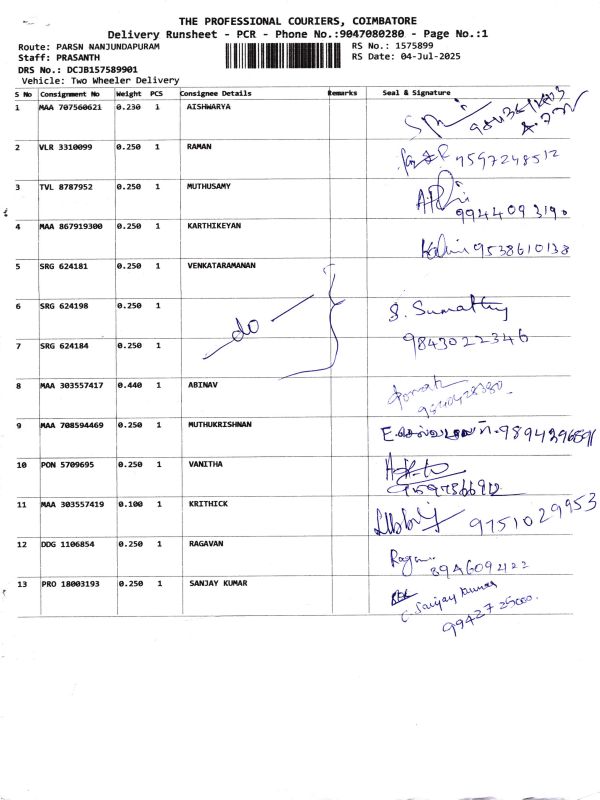 THE PROFESSIONAL COURIERS, COIMBATORE
Delivery Runsheet - PCR - Phone No.:9047080280 - Page No.:1
Route: PARSN NANJUNDAPURAM
RS No.: 1575899
Staff: PRASANTH
RS Date: 04-Jul-2025
DRS No.: DCJB157589901
Vehicle: Two Wheeler Delivery
S No Consignment No Weight PCS Consignee Details Remarks Seal & Signature
1 MAA 707560621 0.230 1 AISHWARYA
2 VLR 3310099 0.250 1 RAMAN 7597248512
3 TVL 8787952 0.250 1 MUTHUSAMY
9944093190
4 MAA 867919300 0.250 1 KARTHIKEYAN 9538610138
5 SRG 624181 0.250 1 VENKATARAMANAN
6 SRG 624198 0.250 1 S. Sumathy
do
7 SRG 624184 0.250 1 9843022346
8 MAA 303557417 0.440 1 ABINAV
9840428380
9 MAA 708594469 0.250 1 MUTHUKRISHNAN
10 PON 5709695 0.250 1 VANITHA
11 MAA 303557419 0.100 1 KRITHICK 9751029953
12 DDG 1106854 0.250 1 RAGAVAN
894609422
13 PRO 18003193 0.250 1 SANJAY KUMAR C. Sanjay Kumar
9942725000.